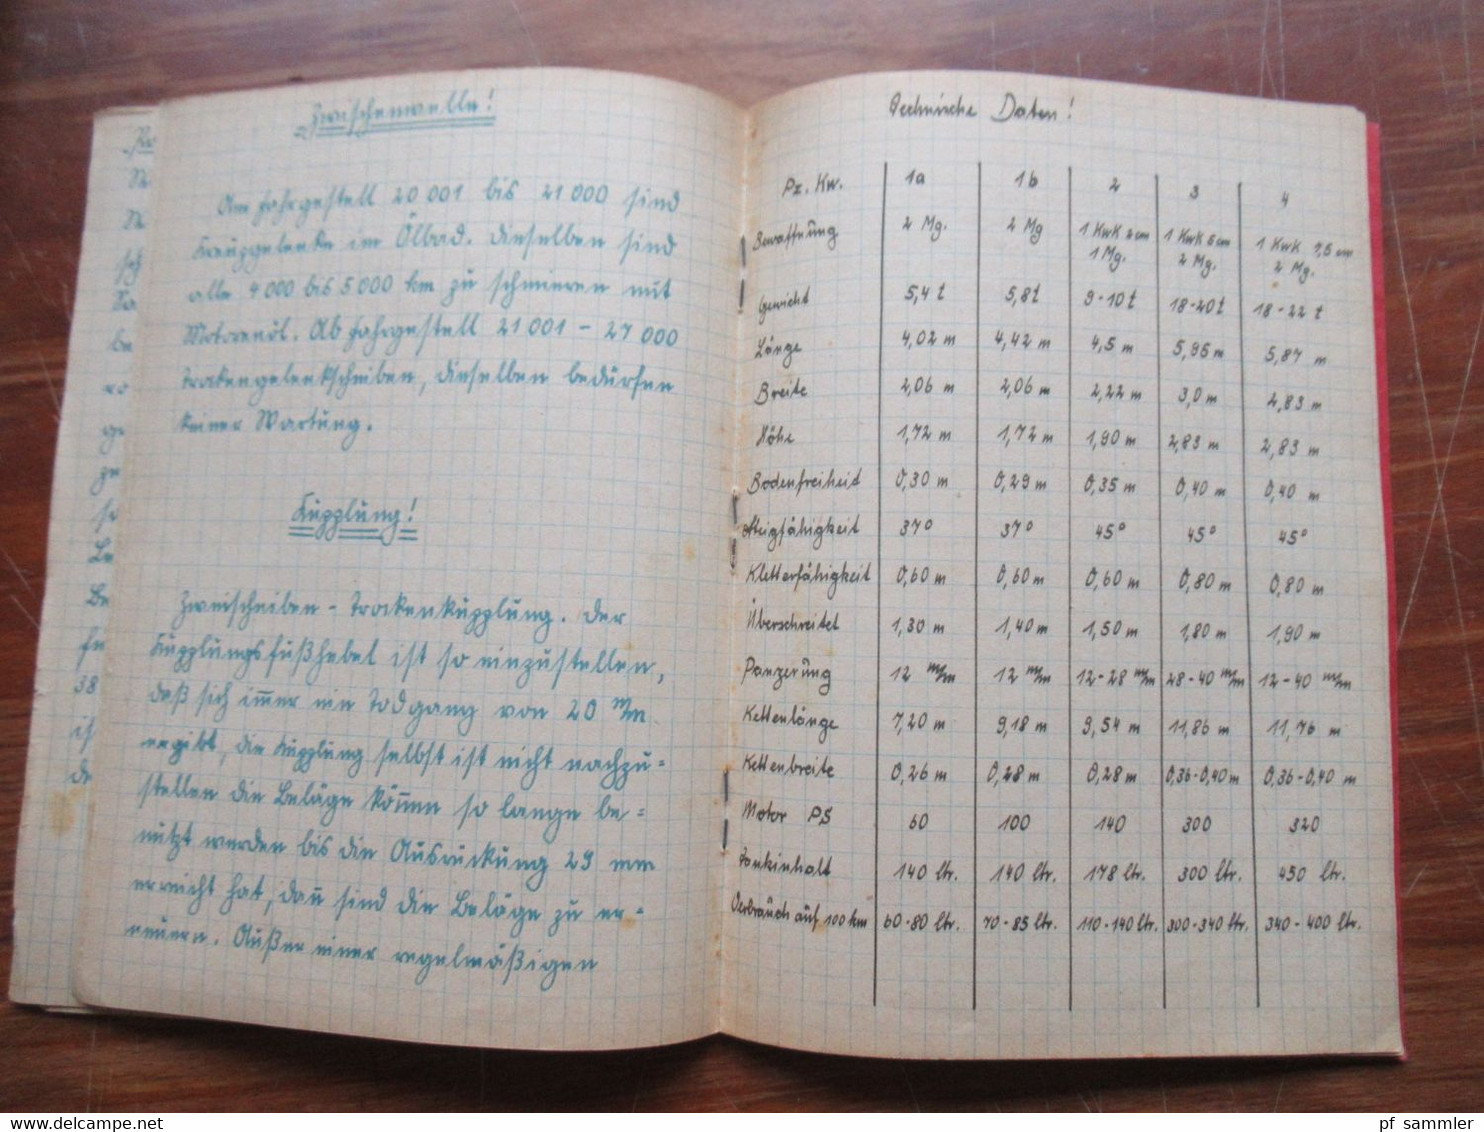 Zwischenwelle!
Am Fahrgestell 20 001 bis 21 000 sind
Kreuzgelenke im Ölbad. Dieselben sind
alle 4 000 bis 5 000 km zu schmieren mit
Motorenöl. Ab Fahrgestell 21 001 – 27 000
Trockengelenkscheiben, dieselben bedürfen
keiner Wartung.
Kupplung!
Zweischeiben – Trockenkupplung. Der
Kupplungsfußhebel ist so einzustellen,
daß sich im̅er ein Todgang von 20 m/m
ergibt, die Kupplung selbst ist nicht nachzu=
stellen die Beläge kön̅en so lange be=
nützt werden bis die Ausrückung 29 mm
erreicht hat, dan̅ sind die Beläge zu er=
neuern. Außer einer regelmäßigen
Technische Daten!
Pz. Kw. 1a 1b 2 3 4
Bewaffnung 2 Mg. 2 Mg 1 KwK 2 cm 1 Mg. 1 KwK 5 cm 2 Mg. 1 KwK 7,5 cm 2 Mg.
Gewicht 5,4 t 5,8 t 9-10 t 18-20 t 18-22 t
Länge 4,02 m 4,42 m 4,5 m 5,95 m 5,87 m
Breite 2,06 m 2,06 m 2,22 m 3,0 m 2,83 m
Höhe 1,72 m 1,72 m 1,90 m 2,83 m 2,83 m
Bodenfreiheit 0,30 m 0,29 m 0,35 m 0,40 m 0,40 m
Steigfähigkeit 37° 37° 45° 45° 45°
Kletterfähigkeit 0,60 m 0,60 m 0,60 m 0,80 m 0,80 m
Überschreitet 1,30 m 1,40 m 1,50 m 1,80 m 1,90 m
Panzerung 12 m/m 12 m/m 12-28 m/m 28-40 m/m 12-40 m/m
Kettenlänge 7,20 m 9,18 m 9,54 m 11,86 m 11,76 m
Kettenbreite 0,26 m 0,28 m 0,28 m 0,36-0,40 m 0,36-0,40 m
Motor PS 60 100 140 300 320
Tankinhalt 140 ltr. 140 ltr. 178 ltr. 300 ltr. 450 ltr.
Verbrauch auf 100 km 60-80 ltr. 70-85 ltr. 110-140 ltr. 300-340 ltr. 340-400 ltr.
delcampe.net
pf_sammler